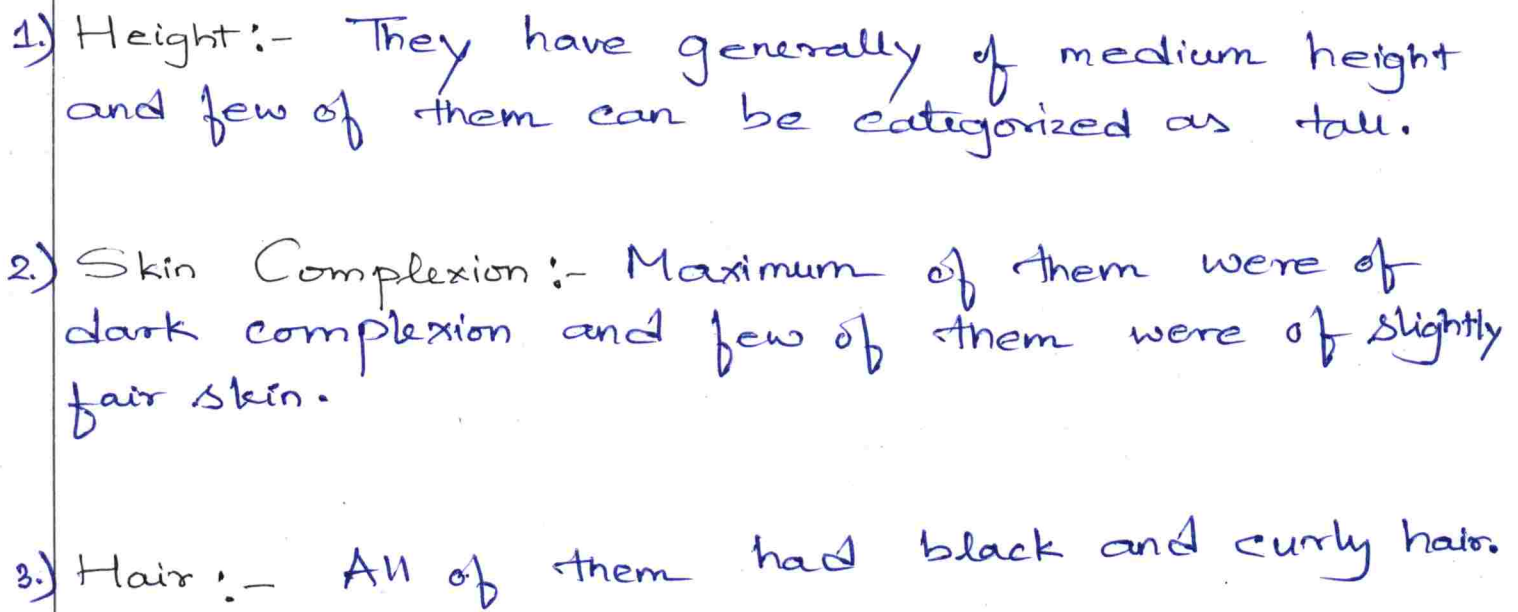 1.) Height :- They have generally of medium height
and few of them can be categorized as tall.
2.) Skin Complexion :- Maximum of them were of
dark complexion and few of them were of slightly
fair skin.
3.) Hair :- All of them had black and curly hair.